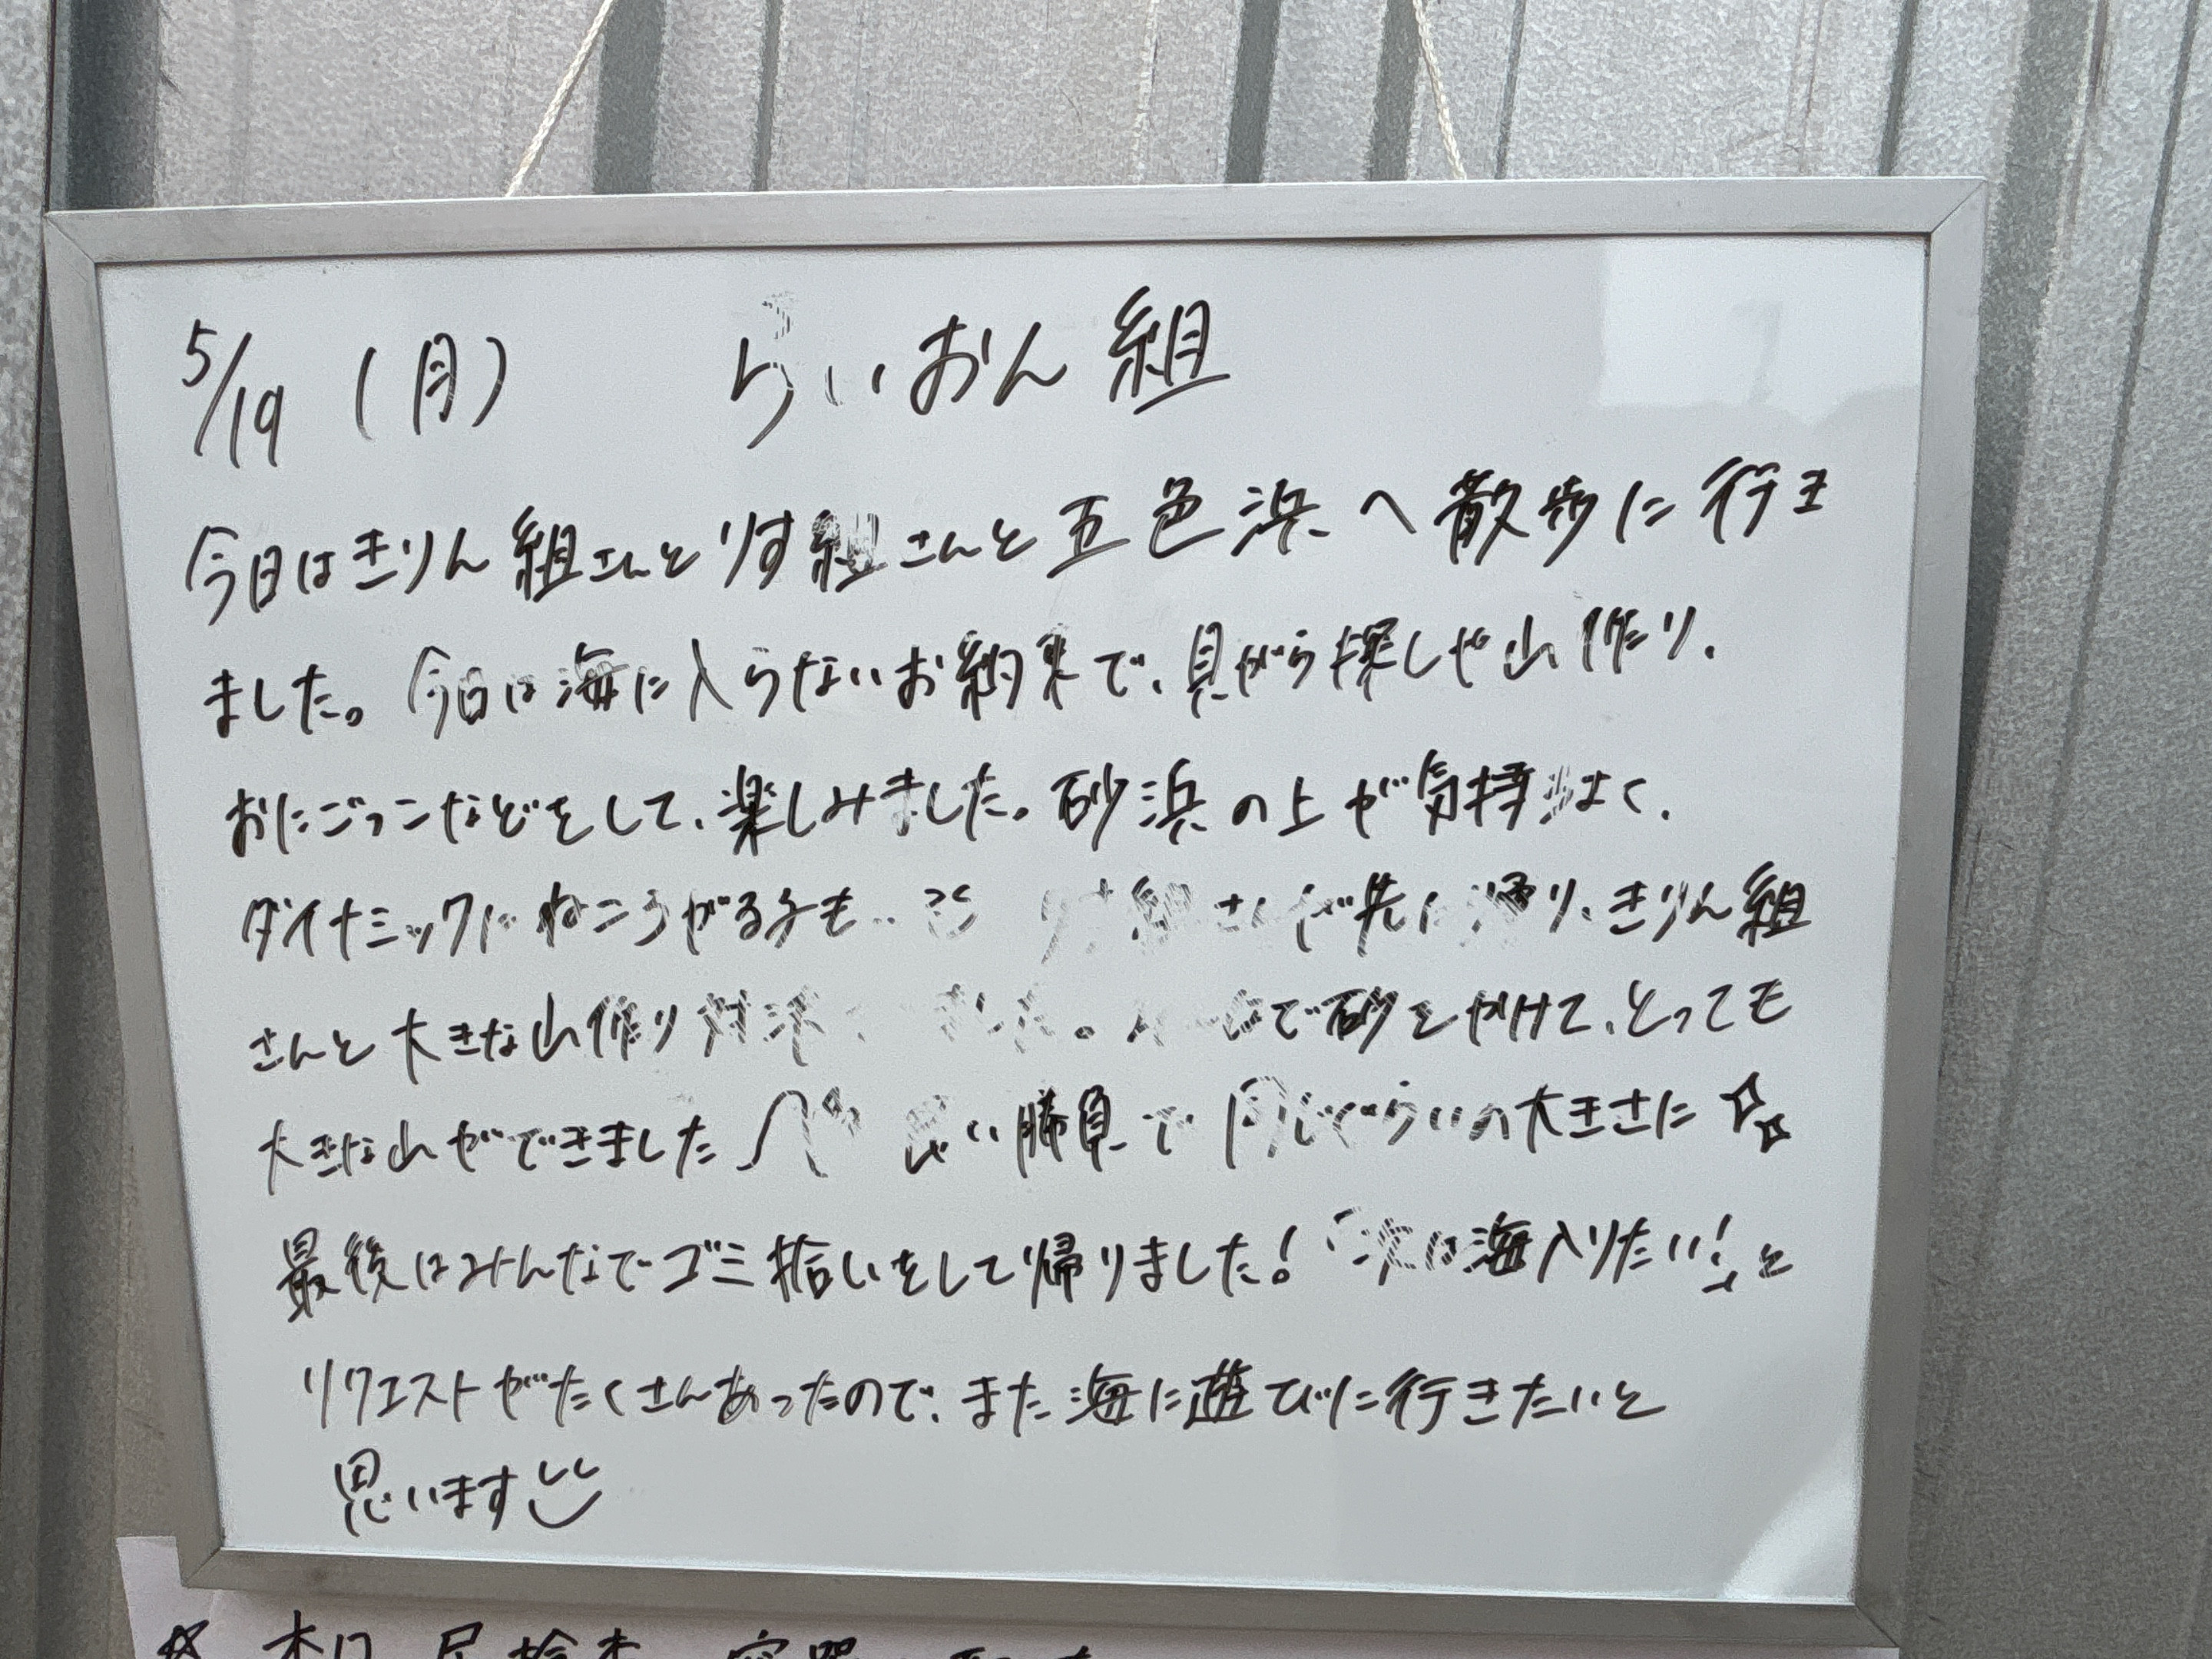 5/19 (月) らいおん組
今日はきりん組さんとりす組さんと五色浜へ散歩に行き
ました。今日は海に入らないお約束で、貝がら探しや山作り、
おにごっこなどをして、楽しみました。砂浜の上が気持ちよく、
ダイナミックにねころがる子も… りす組さんが先に帰り、きりん組
さんと大きな山作り対決 で砂をかけて、とっても
大きな山ができました 良い勝負で同じぐらいの大きさに
最後はみんなでゴミ拾いをして帰りました!「次は海入りたい!」と
リクエストがたくさんあったので、また海に遊びに行きたいと
思います